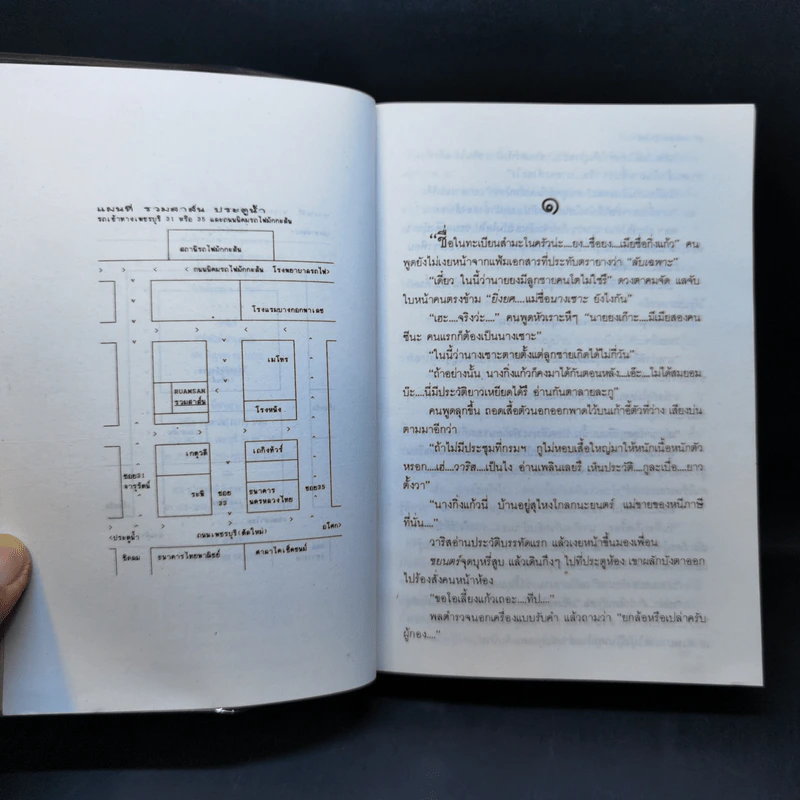 แผนที่ รวมสาส์น ประตูน้ำ
รถเข้าทางเพชรบุรี 31 หรือ 35 และถนนนิคมรถไฟมักกะสัน
สถานีรถไฟมักกะสัน
< ถนนนิคมรถไฟมักกะสัน โรงพยาบาลรถไฟ>
โรงแรมบางกอกพาเลซ
เมโทร
RUAMSAN
รวมสาส์น
โรงหนัง
เกตุวดี
เถกิงทัวร์
ซอย31
จารุรัตน์
ระฆี
ซอย
33
ธนาคาร
นครหลวงไทย
ซอย35
<ประตูน้ำ
ถนนเพชรบุรี(ตัดใหม่)
อโศก>
ชิดลม
ธนาคารไทยพาณิชย์
ศาลาโตเช็คชนม์
๑
“ชื่อในทะเบียนสำมะโนครัวน่ะ....ยง...ชื่อยง....เมียชื่อกิ่งแก้ว” คน
พูดยังไม่เงยหน้าจากแฟ้มเอกสารที่ประทับตรายางว่า “ลับเฉพาะ”
“เดี๋ยว ในนี้ว่านายยงมีลูกชายคนโตไม่ใช่รึ” ดวงตาคมจัด แลจับ
ใบหน้าคนตรงข้าม “ยิ่งยศ....แม่ชื่อนางเซาะ ยังไงกัน”
“เฮะ....จริงว่ะ....” คนพูดหัวเราะหึๆ “นายยงเก๊าะ....มีเมียสองคน
ซีนะ คนแรกก็ต้องเป็นนางเซาะ”
“ในนี้ว่านางเซาะตายตั้งแต่ลูกชายเกิดได้ไม่กี่วัน”
“ถ้าอย่างนั้น นางกิ่งแก้วก็คงมาได้กันตอนหลัง...เอ๊ะ....ไม่ได้สมยอม
บ๊ะ....นี่มีประวัติยาวเหยียดได้รึ อ่านกันตาลายละกู”
คนพูดลุกขึ้น ถอดเสื้อตัวนอกออกพาดไว้บนเก้าอี้ตัวที่ว่าง เสียงบ่น
ตามมาอีกว่า
“ถ้าไม่มีประชุมที่กรมฯ กูไม่หอบเสื้อใหญ่มาให้หนักเนื้อหนักตัว
หรอก....เฮ่....วาริส....เป็นไง อ่านเพลินเลยรึ เห็นประวัติ....กูละเบื่อ....ยาว
ตั้งวา”
“นางกิ่งแก้วนี่ บ้านอยู่สุไหงโกลกนะยนตร์ แม่ขายของหนีภาษี
ที่นั่น....”
วาริสอ่านประวัติบรรทัดแรก แล้วเงยหน้าขึ้นมองเพื่อน
รถยนตร์จุดบุหรี่สูบ แล้วเดินกึงๆ ไปที่ประตูห้อง เขาผลักบังตาออก
ไปร้องสั่งคนหน้าห้อง
“ขอโอเลี้ยงแก้วเถอะ....ทีป....”
พลตำรวจนอกเครื่องแบบรับคำ แล้วถามว่า “ยกล้อหรือเปล่าครับ
ผู้กอง....”